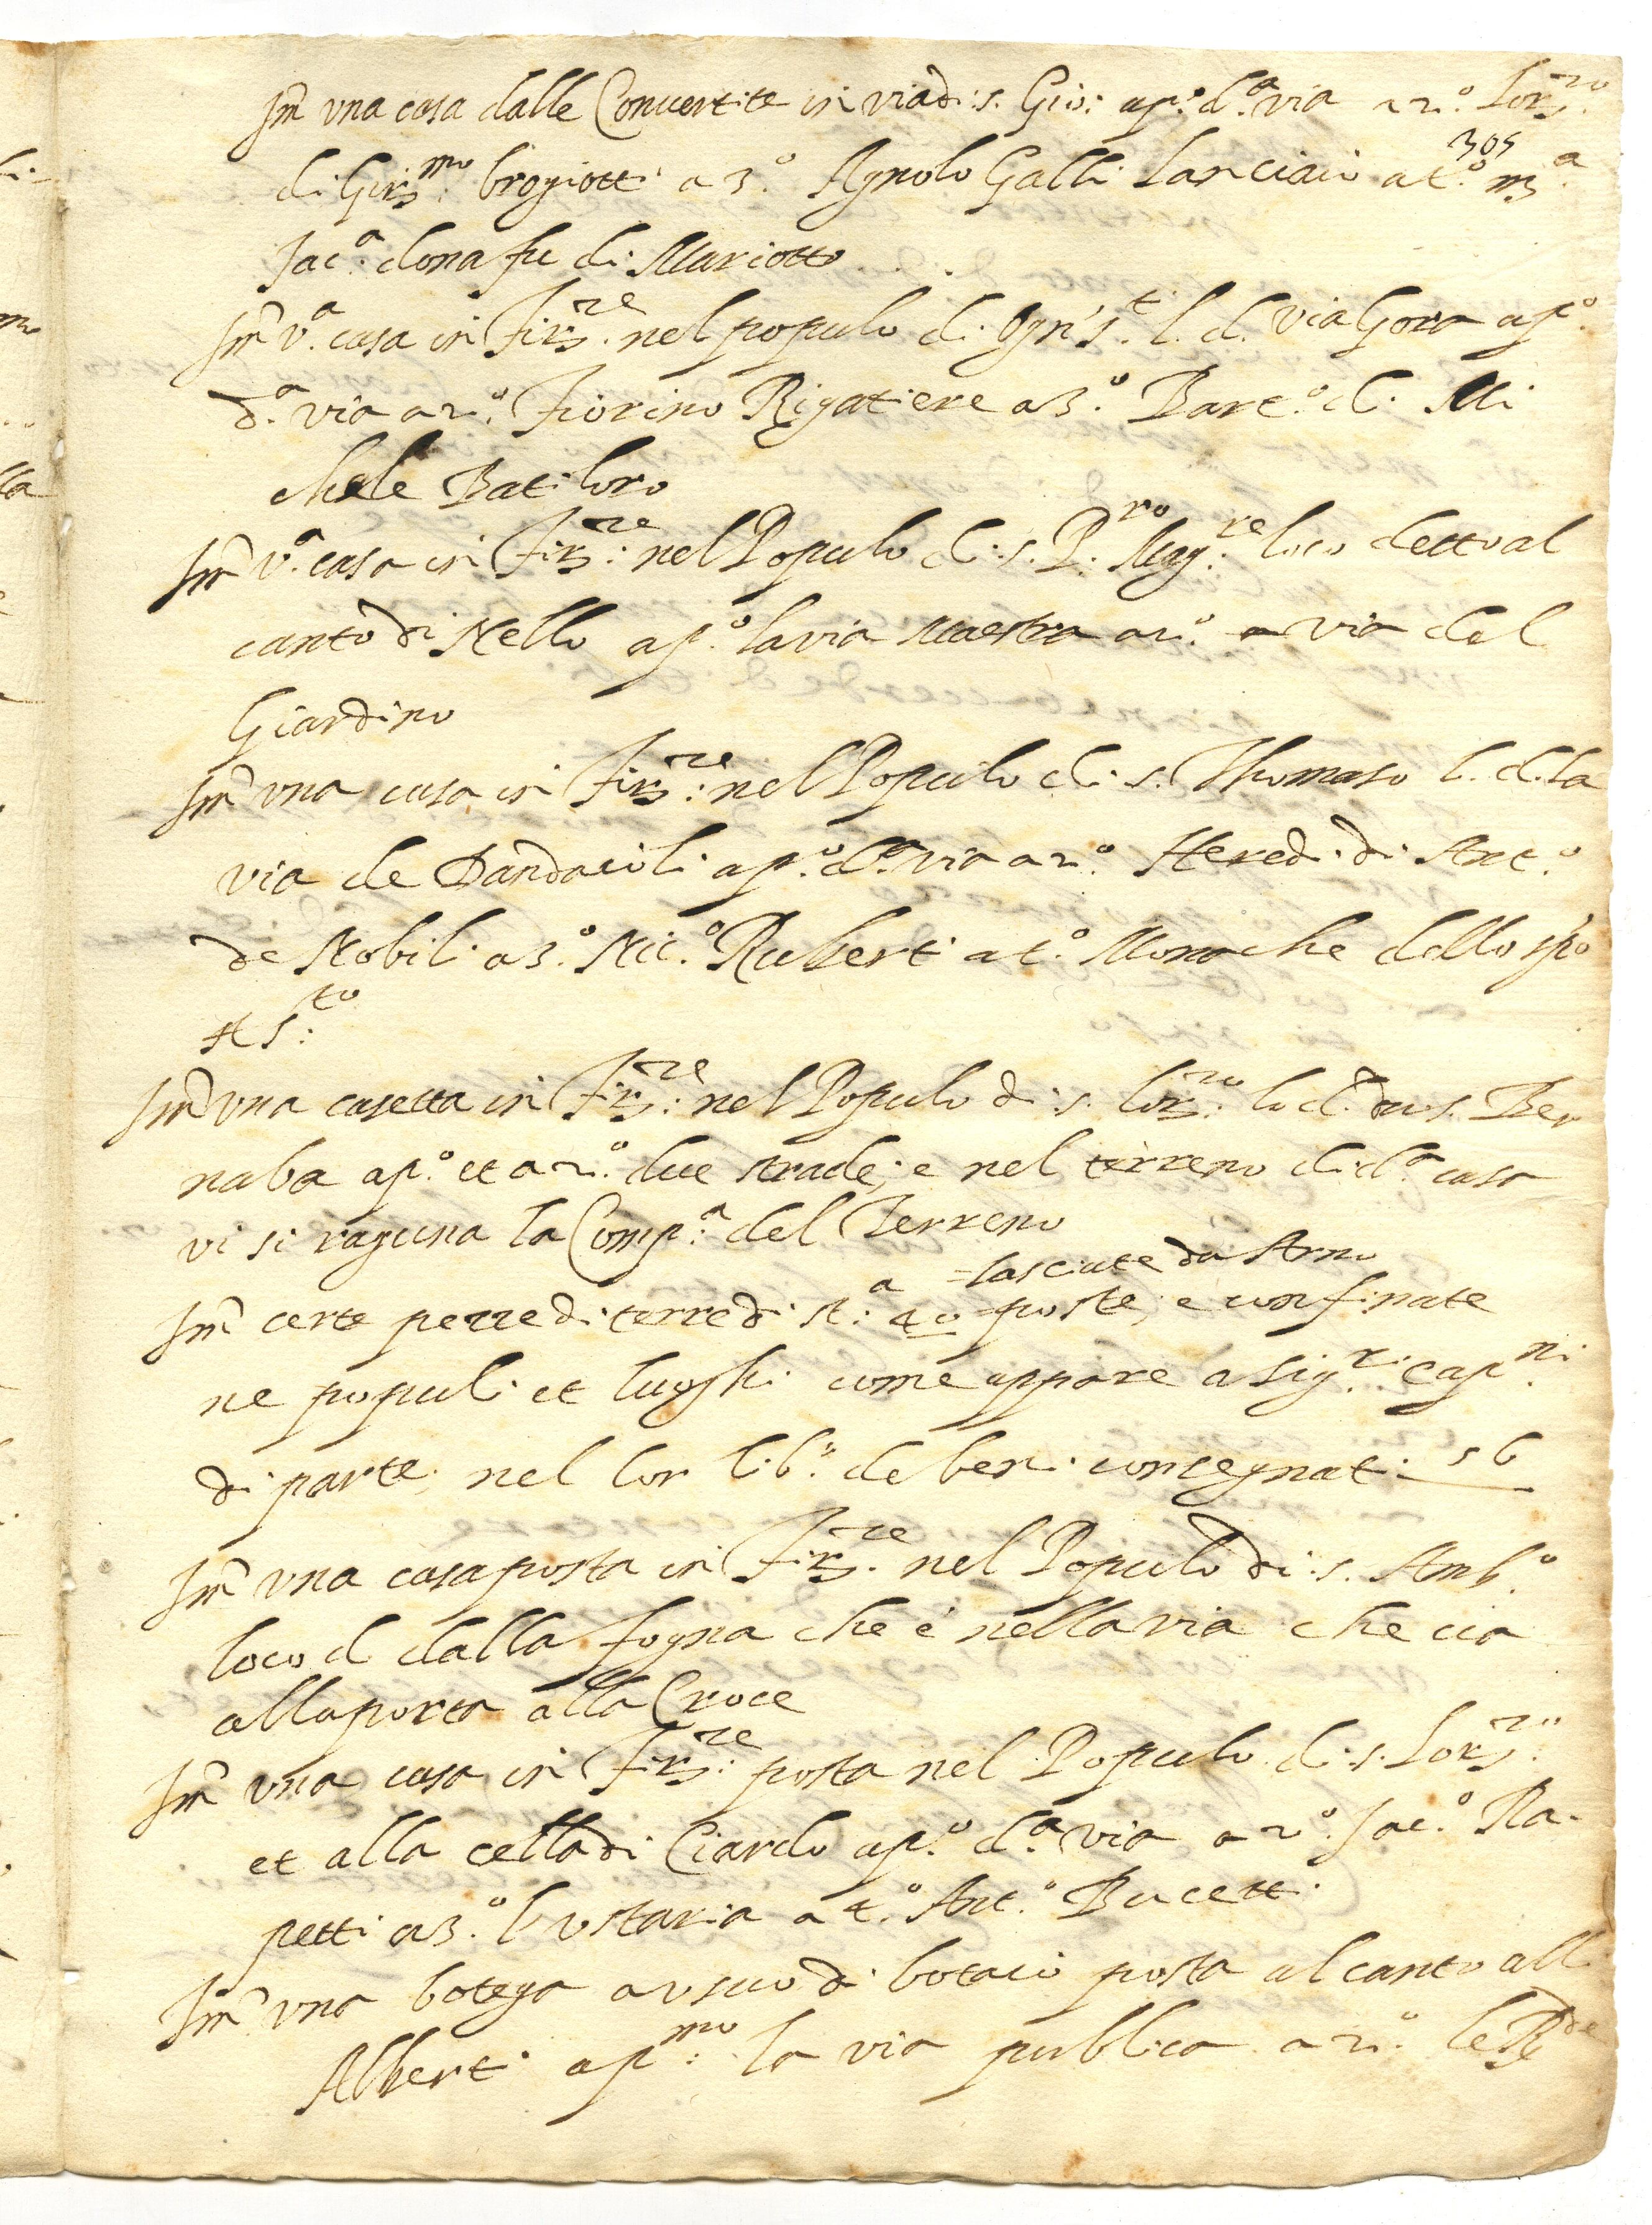 Im̃ vna casa dalle Conuertite in via di s. Gio: a p.º d.ª via a 2.º Lorz.º
di Girº.mo brogiotti a 3.º Agnolo Galli Lanciaio a 4.º m.ª
Jac.ª dona fu di Mariotto
Im̃ v.ª casa in Firz.ze nel populo di Ogn' s.t l. d. via Gora a p.º
d.ª via a 2.º Fiorino Rigatiere a 3.º Bart.º di Mi
chele Batiloro
Im̃ v.ª casa in Firz.ze nel Populo di s. P.ro Mag.re loco detto al
canto di Nello a p.º la via Maestra a 2.º via del
Giardino
Im̃ vna casa in Firz.ze nel Populo di s. Thomaso l. d. la
via de a p.º d.ª via a 2.º Heredi di Ant.º
de Nobili a 3.º Nic.º Ruberti a 4.º Monache dello spe
s.to
Im̃ vna casetta in Firz.ze nel Populo di s. Lorz.zo lo d. da s. Ber
naba a p.º et a 2.º due strade; e nel terreno di d.ª casa
vi si raguna la Comp.ª del Terreno
= lasciate da Arno
Im̃ certe pezze di terre di st.ª 40 poste, e confinate
ne populi et luoghi come appare a Sig.ri Cap.ni
di parte, nel lor lib.º de beni consegnati 56
Im̃ vna casa posta in Firz.ze nel Populo di s. Amb.º
loco d dalla fogna che è nella via che va
alla porta alla Croce
Im̃ vna casa in Firz.ze posta nel Populo di s. Lorz.zo
et alla cella di Ciardo a p.º d.ª via a 2.º Jac.º Ra-
petti a 3.º l'ustaria a 4.º Ant.º Bucetti
Im̃ vna botega a vsuo di botaio posta al canto alli
Alberti a p.mo la via publica a 2.º le